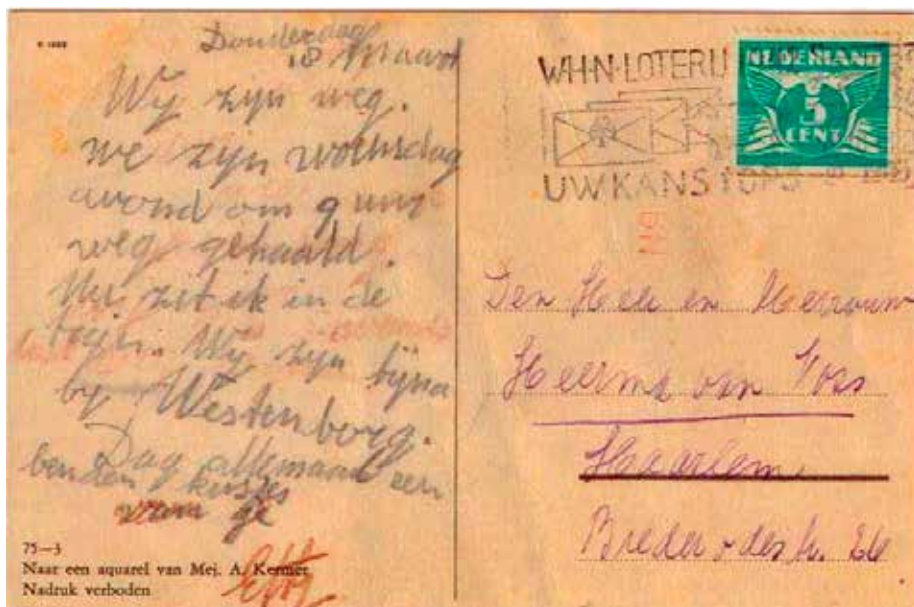 Donderdag
18 Maart
Wij zijn weg.
we zijn woensdag
avond om 9 uur
weg gehaald.
Nu zit ik in de
trein. Wij zijn bijna
by Westenborg.
Dag allemaal een
kusjes
van je
Etty
75—3
Naar een aquarel van Mej. A. Kermer
Nadruk verboden
W·H·N·LOTERIJ
UW KANS
NEDERLAND
5
CENT
Den Heer en Mevrouw
Heerma van Voss
Haarlem
Brederodestr.